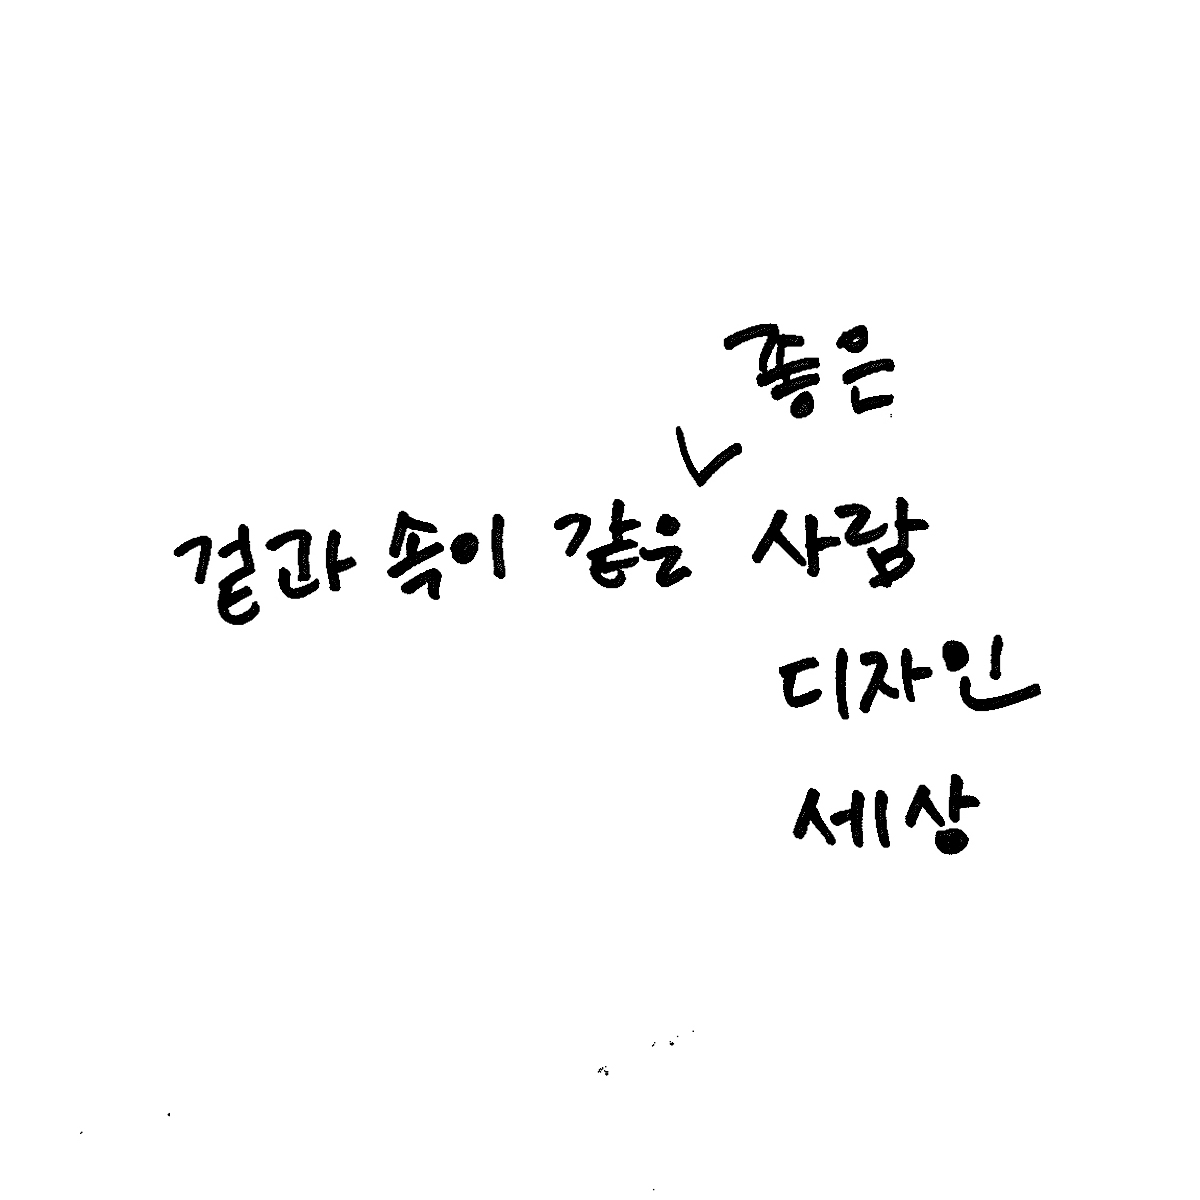 좋은
겉과 속이 같은 사람
디자인
세상